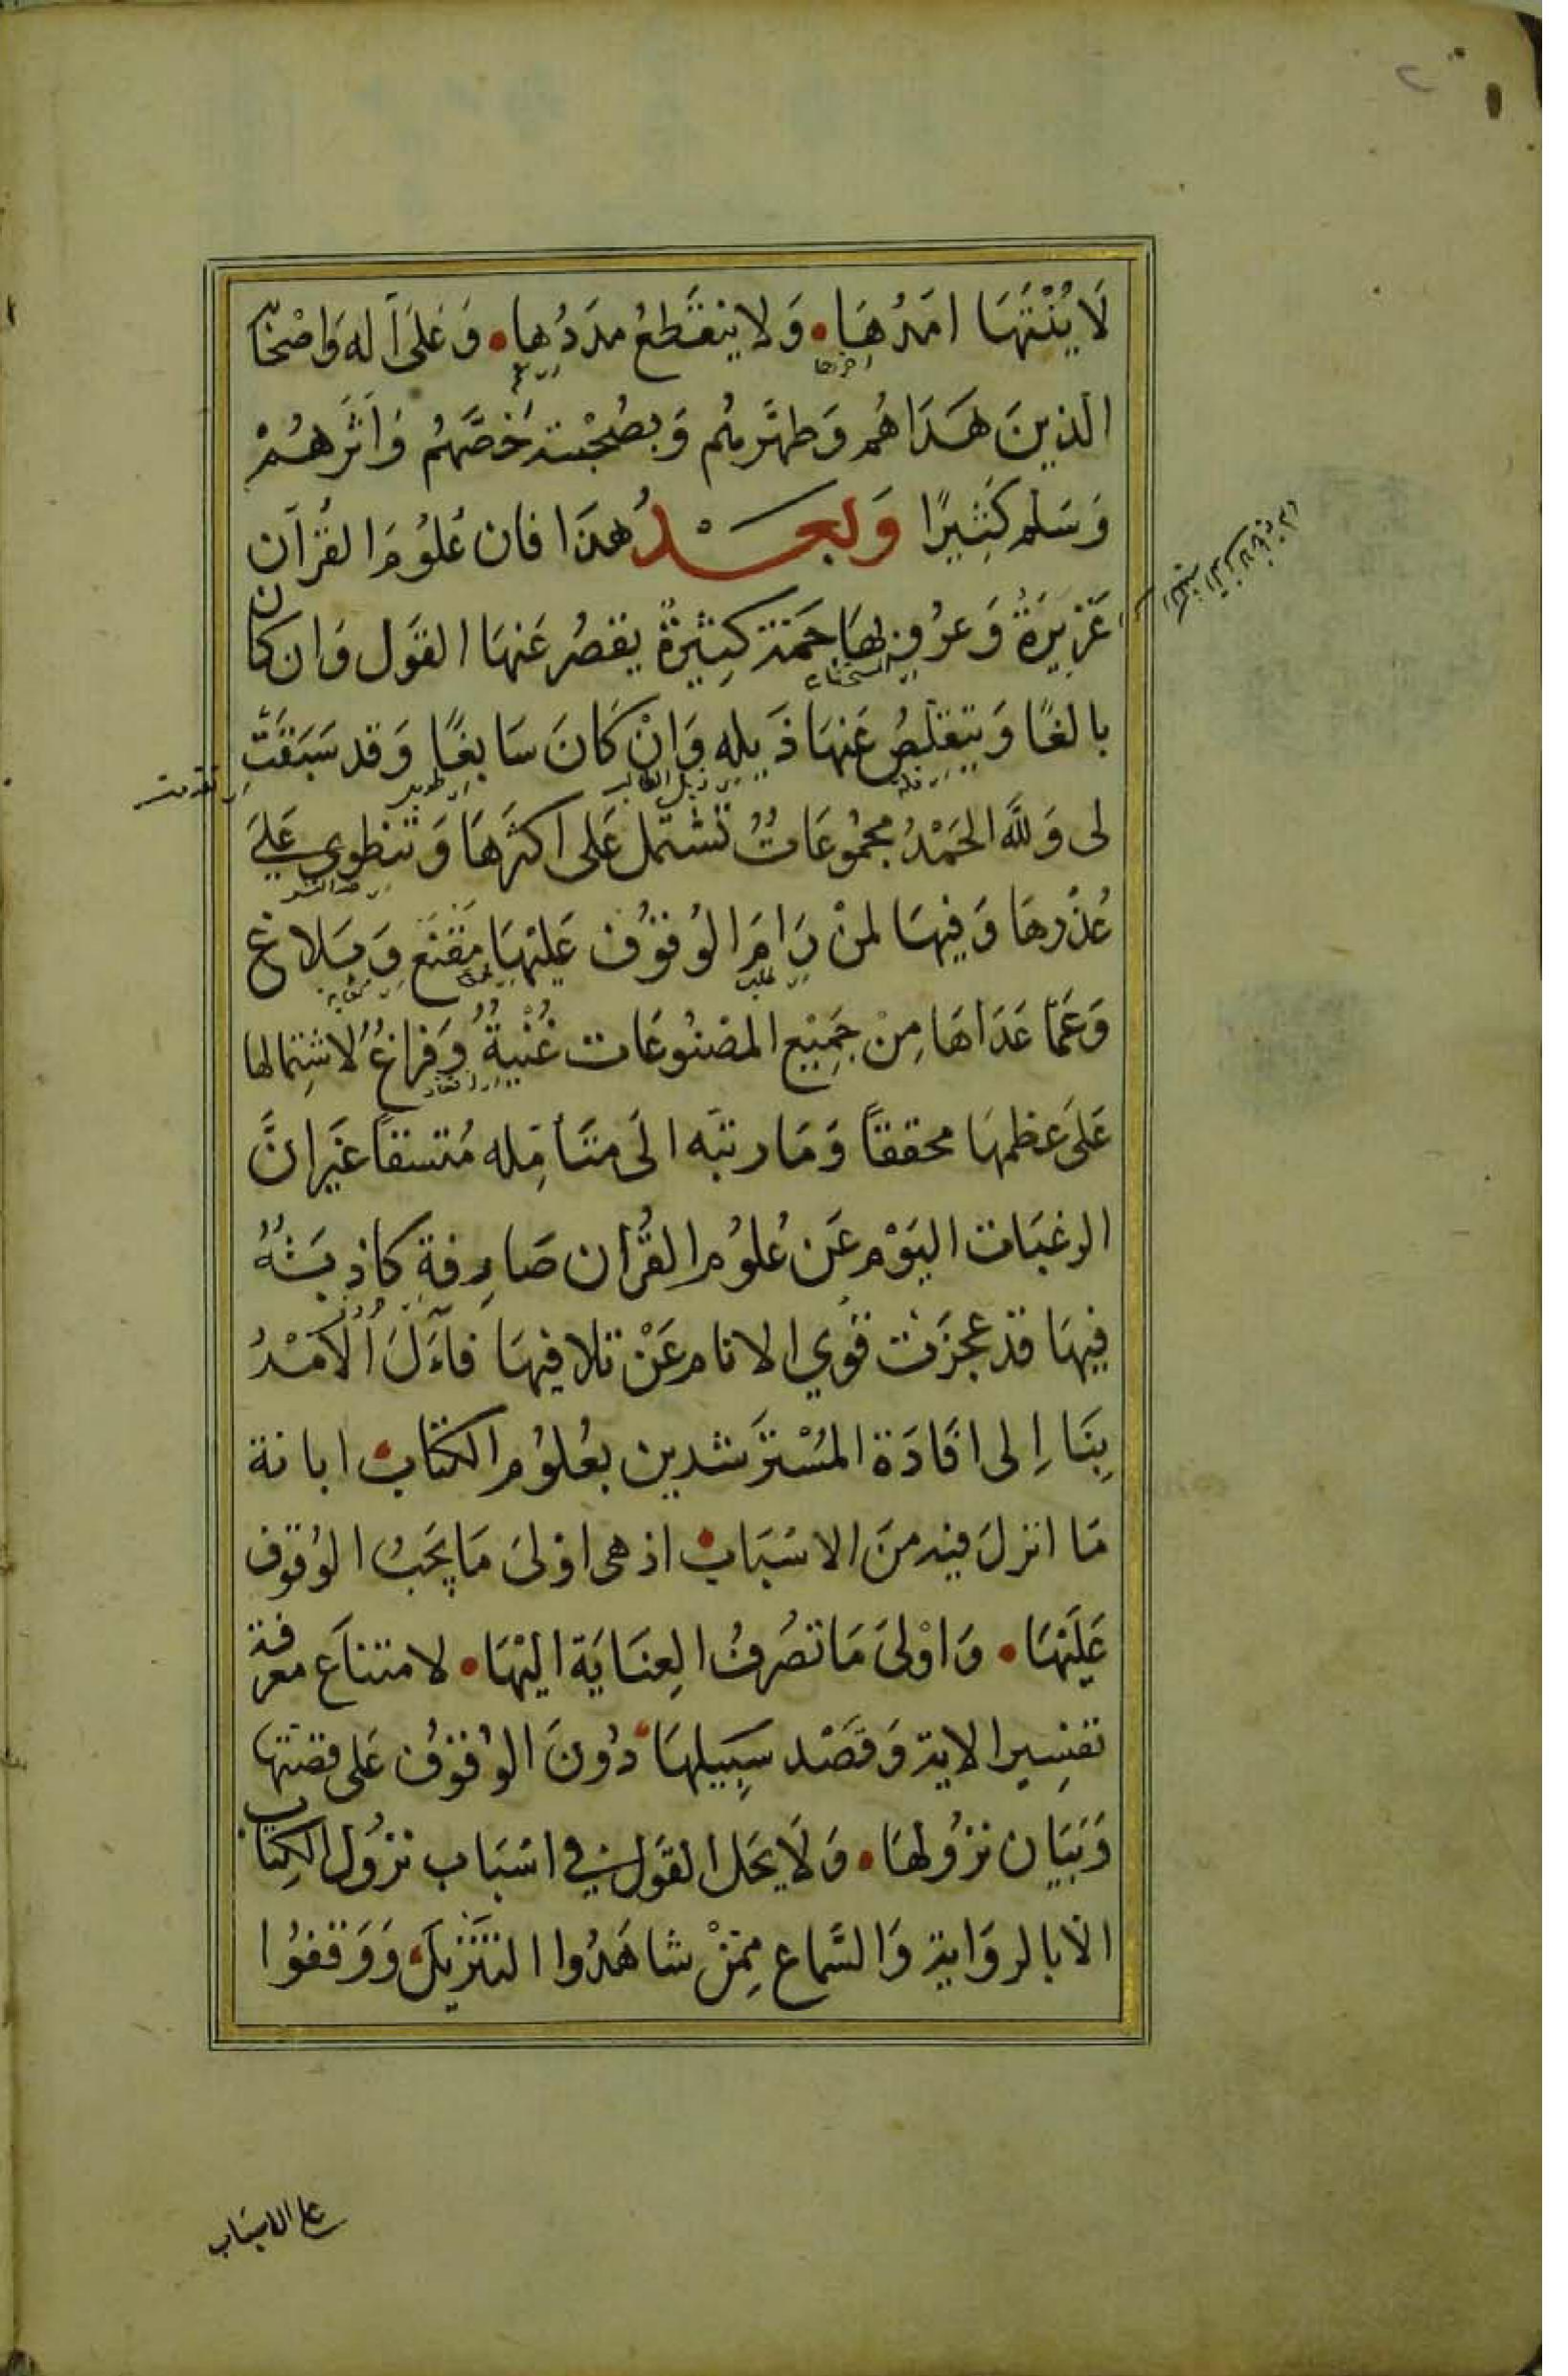 لَا يُنْتَهَا امَدُهَا • وَلا ينقَطِعُ مدَدُها • وَعَلىَ آله وَاصْحَابِ
الذينَ هَدَاهُم وَطهَّرهُم وَبصُحْبته خَصَّهُم وَآثَرَهُمْ
وَسَلم كَثِيرًا وَبعَــدُ هٰذَا فان عُلوُمَ القُرآن
غَزيرَةٌ وَعرُوفهَا جَمَّة كثِيرةٌ يقصُر عَنهَا القوَل وَان كانَ
بالغًا وَيتقلّصُ عَنهَا ذَيله وَانْ كَانَ سَابغًا وَقد سَبَقَتْ
لى وَللَّه الحَمْدُ مجمُوعَاتٌ تشتمل عَلى اكثرهَا وَتنطوي عَلَى
غُذْرهَا وَفيهَا لمنْ رَامَ الوُقوُف عَليْهَا مَقنَع وَبَلاغ
وَعَمّا عَدَاهَا مِنْ جَمِيْع المصْنُوعَات غُنْيةٌ وَفرَاغٌ لاشتِمالها
عَلىَ عظمهَا محققاً وَمَا رتبَه الىَ متَأمِّله مُتسقاً غيَر انَّ
الرغبَات اليَوْم عَن عُلوُم القُرآن صَارِفة كاذبَةٌ
فيهَا قدْ عجزَت قوُي الانام عَنْ تلافيهَا فآلَ الامْرُ
بِنَا اِلى افَادَة المُسْترَشدين بعُلوُم الكتاب • ابانة
مَا انزلَ فيه منَ الاسْبَاب • اذ هى اوْلىَ مَا يجَبُ الوُقوُف
عَليَهَا • وَاوْلىَ مَا تصُرفُ العِنَايَة اليْهَا • لامتناَع معرفة
تفسِير الاية وَقصْد سَبيلهَا • دُونَ الوُقوُف عَلى قصّتها
وَبَيَان نزوُلهَا • وَلَا يحَل القوَل في اسْبَاب نزوُل الكِتاب
الّا بالروَاية وَالسَّماع مِمّنْ شاهَدُوا التنْزيلَ • وَوَقفوُا
على الاسْبَاب